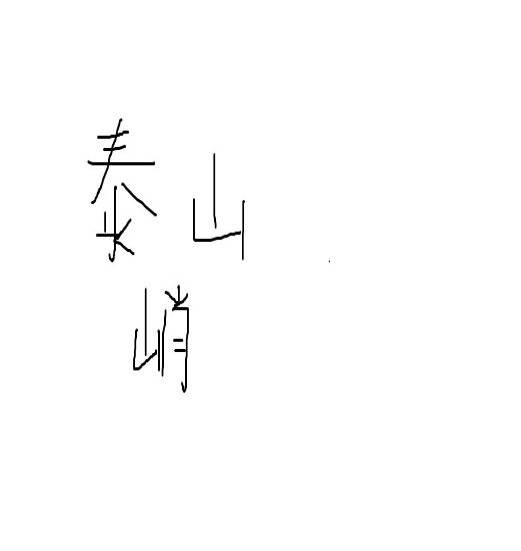 泰山
峭